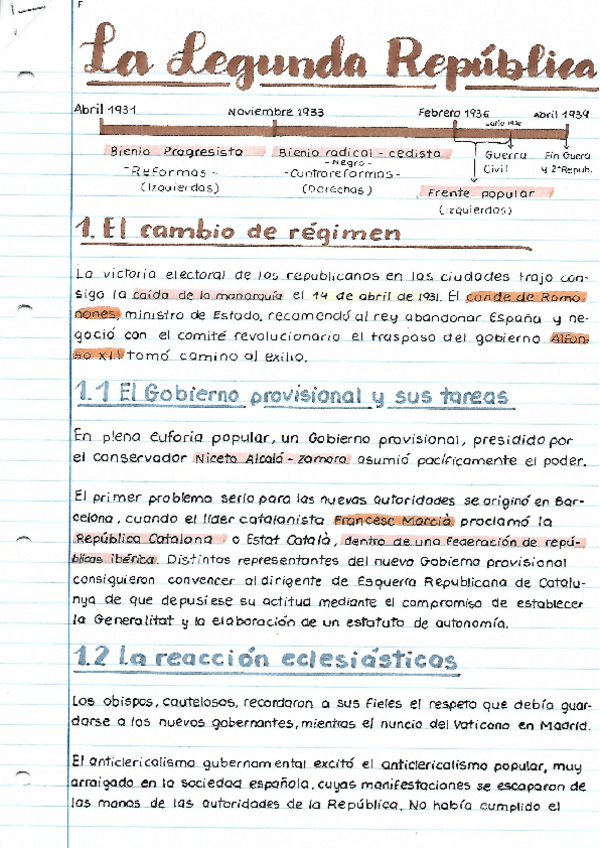 F
La Segunda República
Abril 1931 Noviembre 1933 Febrero 1936 Julio 1936 Abril 1939
Bienio Progresista Bienio radical - cedista Guerra Fin Guerra
- Negro -
- Reformas - - Contrarreformas - Civil y 2ª Repub.
(Izquierdas) (Derechas) Frente popular
(izquierdas)
1. El cambio de régimen
La victoria electoral de los republicanos en las ciudades trajo con-
sigo la caída de la monarquía el 14 de abril de 1931. El conde de Romo-
nones, ministro de Estado, recomendó al rey abandonar España y ne-
goció con el comité revolucionario el traspaso del gobierno. Alfon-
so XIII tomó camino al exilio.
1.1 El Gobierno provisional y sus tareas
En plena euforia popular, un Gobierno provisional, presidido por
el conservador Niceto Alcalá - Zamora asumió pacíficamente el poder.
El primer problema serio para las nuevas autoridades se originó en Bar-
celona, cuando el líder catalanista Francesc Marcià proclamó la
República Catalana o Estat Català, dentro de una federación de repú-
blicas ibérica. Distintos representantes del nuevo Gobierno provisional
consiguieron convencer al dirigente de Esquerra Republicana de Catalu-
nya de que depusiese su actitud mediante el compromiso de establecer
la Generalitat y la elaboración de un estatuto de autonomía.
1.2 La reacción eclesiásticas
Los obispos, cautelosos, recordaron a sus fieles el respeto que debía guar-
darse a los nuevos gobernantes, mientras el nuncio del Vaticano en Madrid.
El anticlericalismo gubernamental excitó el anticlericalismo popular, muy
arraigado en la sociedad española, cuyas manifestaciones se escaparon de
las manos de las autoridades de la República. No había cumplido el